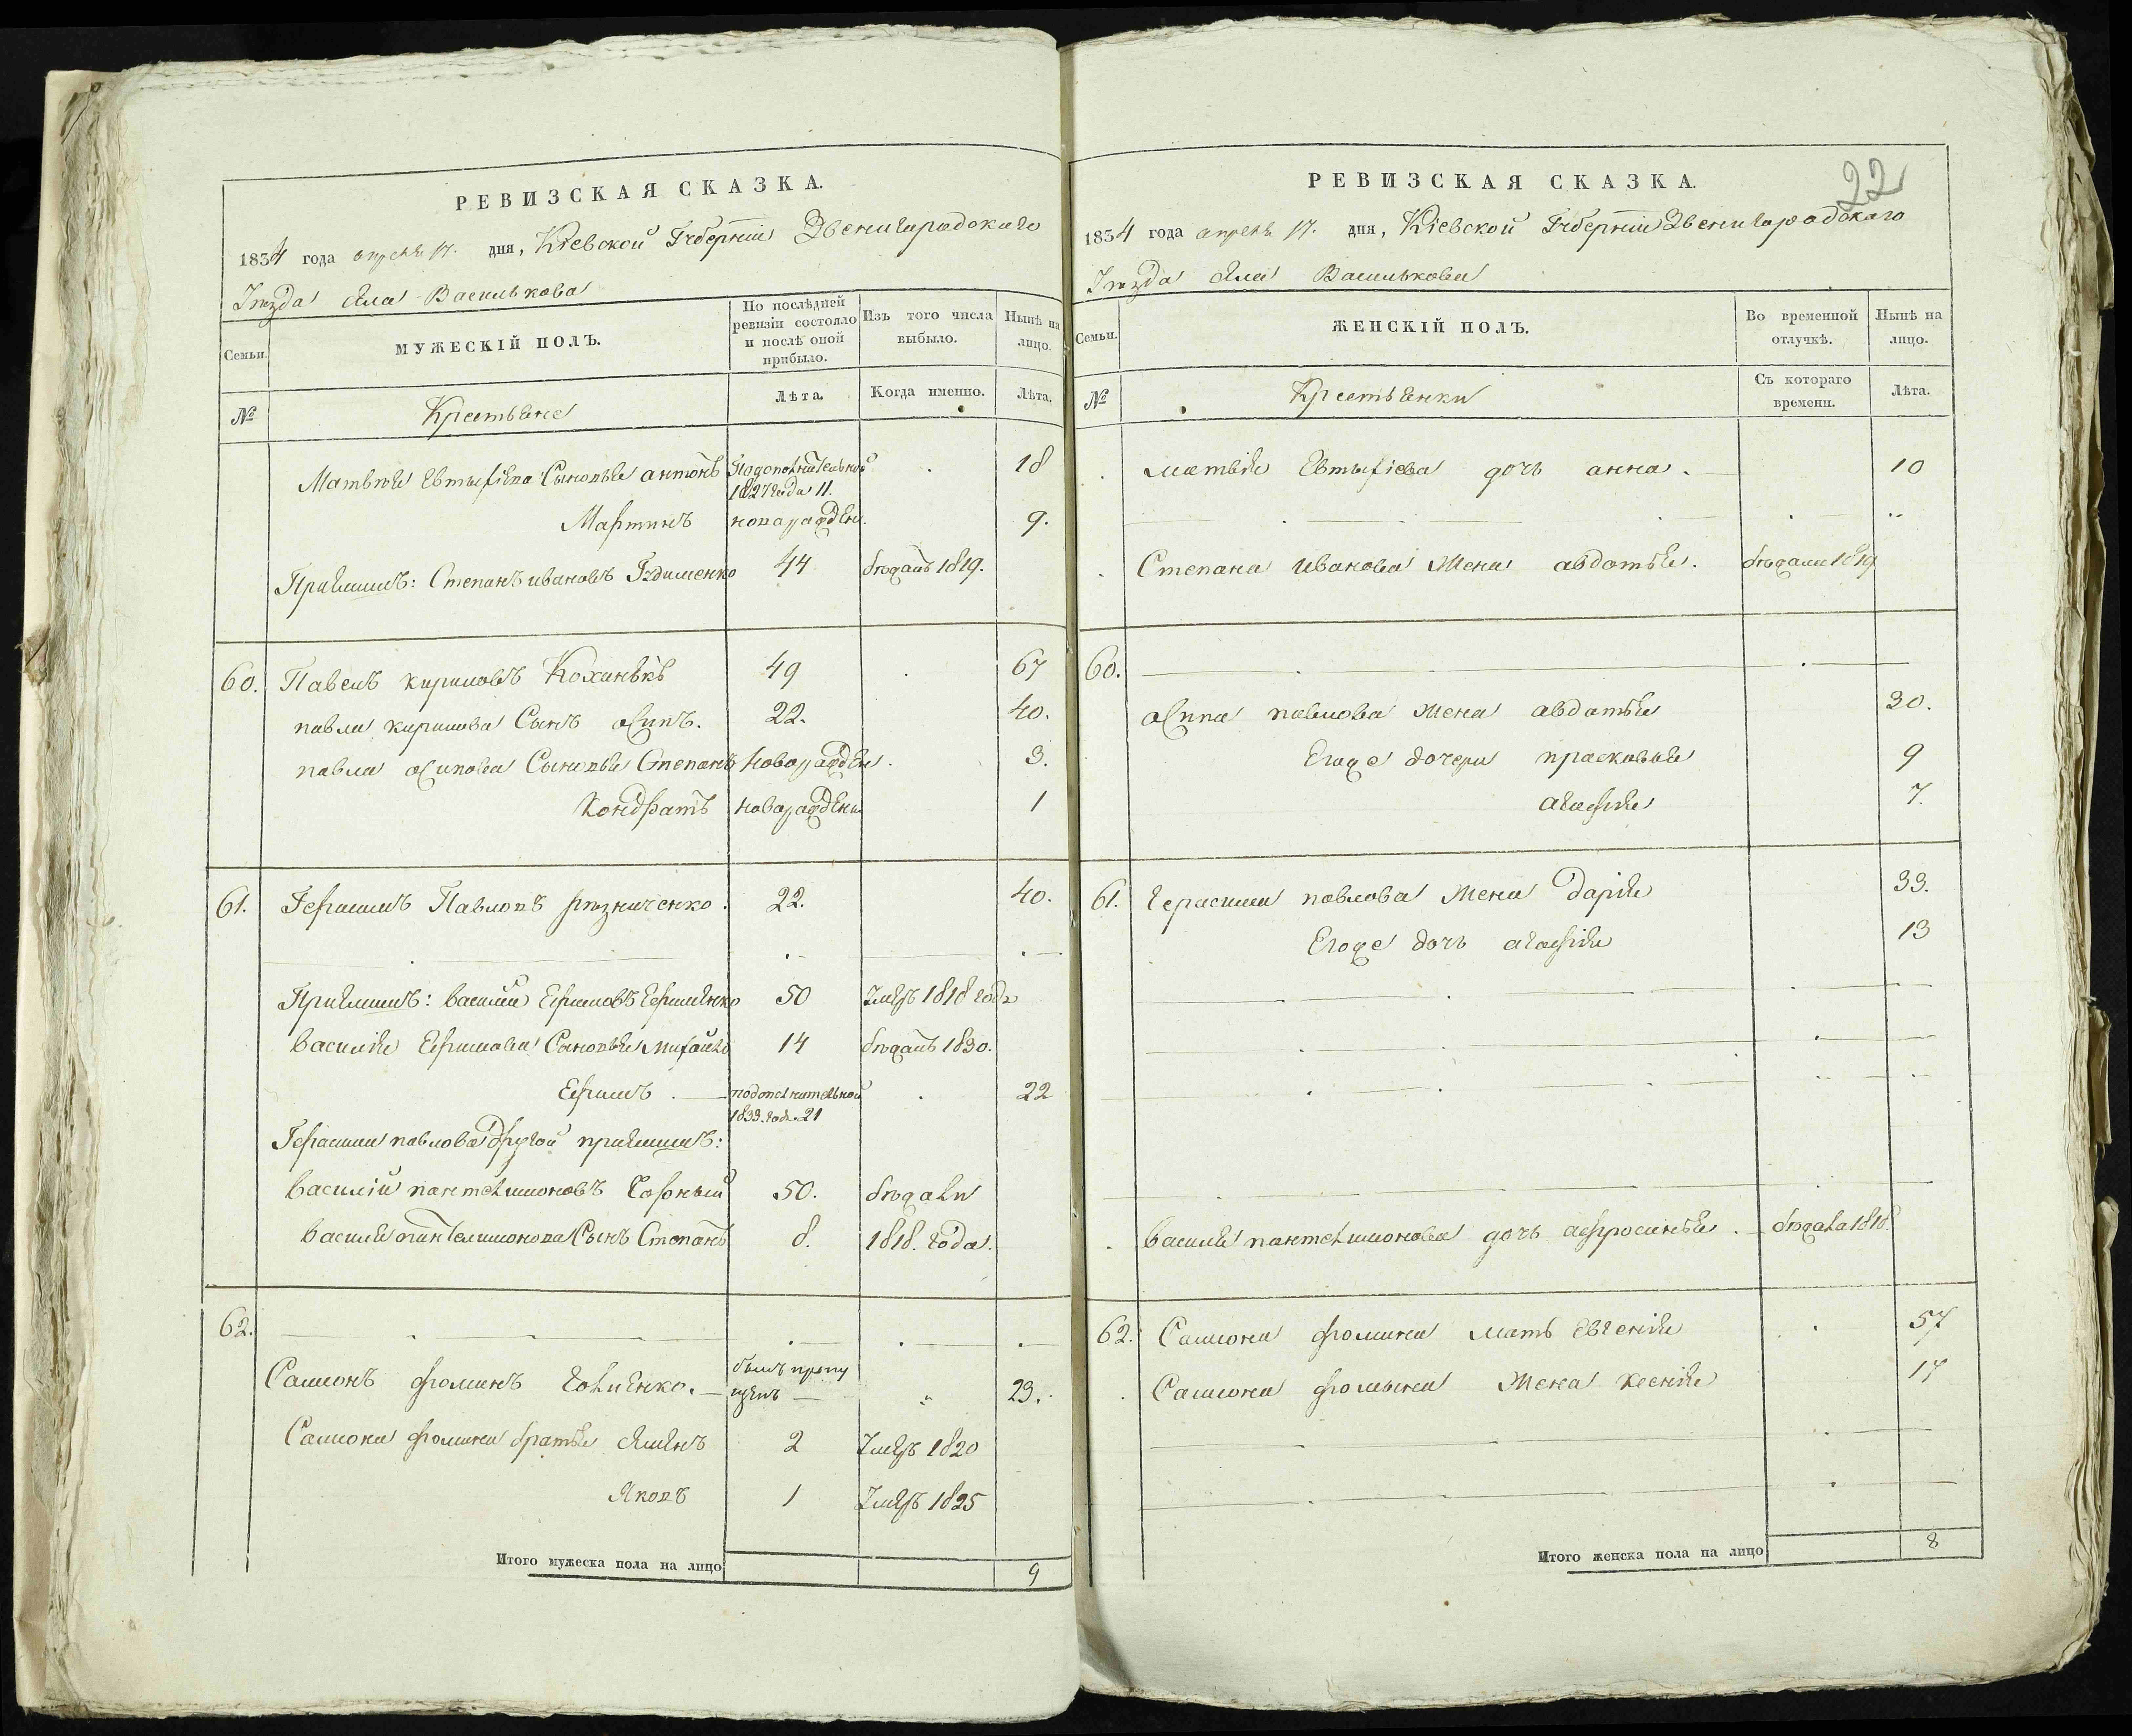 РЕВИЗСКАЯ СКАЗКА.
1834 года апреля 17. дня, Кіевской Губерніи Звенигородскаго
Уезда Села Василькова
Семьи.
МУЖЕСКІЙ ПОЛЪ.
По послѣдней ревизіи состояло и послѣ оной прибыло.
Изъ того числа выбыло.
Нынѣ на лицо.
№
Крестьяне
Лѣта.
Когда именно.
Лѣта.
Матвея Евтыфіева Сыновья антонъ Подополнительной 1827 года 11. 18
Мартинъ новорожден. 9.
Приймышъ: Степанъ ивановъ 44 бѣжалъ 1819.
60. Павелъ кириловъ 49 67
павла кирилова Сынъ осипъ. 22. 40.
павла осипова Сыновья Степанъ новорожден. 3.
Кондратъ новорожден 1
61. Герасимъ Павловъ резниченко. 22. 40.
Приймышъ: василий Ефимовъ Ефименко 50 Умеръ 1818 года
василія Ефимова Сыновья михайло 14 бѣжалъ 1830.
Ефимъ подополнительной 1833. года 21 22
Герасима павлова другой приймышъ:
василій пантелимоновъ Чорный 50. бѣжали
василія пантелимонова Сынъ Степанъ 8. 1818. года.
62.
Самсонъ фоминъ былъ пропущенъ 23.
Самсона фомина братья Семенъ 2 Умеръ 1820
Яковъ 1 Умеръ 1825
Итого мужеска пола на лицо 9
22
РЕВИЗСКАЯ СКАЗКА.
1834 года апреля 17. дня, Кіевской Губерніи Звенигородскаго
Уезда Села Василькова
Семьи.
ЖЕНСКІЙ ПОЛЪ.
Во временной отлучкѣ.
Нынѣ на лицо.
№
Крестьянки
Съ котораго времени.
Лѣта.
матвія Евтыфіева дочь анна. 10
Степана иванова жена авдотья. бѣжали 1819
60.
осипа павлова жена авдотья 30.
Егоже дочери прасковья 9
агафія 7.
61. герасима павлова жена дарія 33.
Егоже дочь агафія 13
василія пантелимонова дочь афросинья. бѣжала 1818.
62. Самсона фомина мать евгенія 57
Самсона фомина жена ксенія 17
Итого женска пола на лицо 8